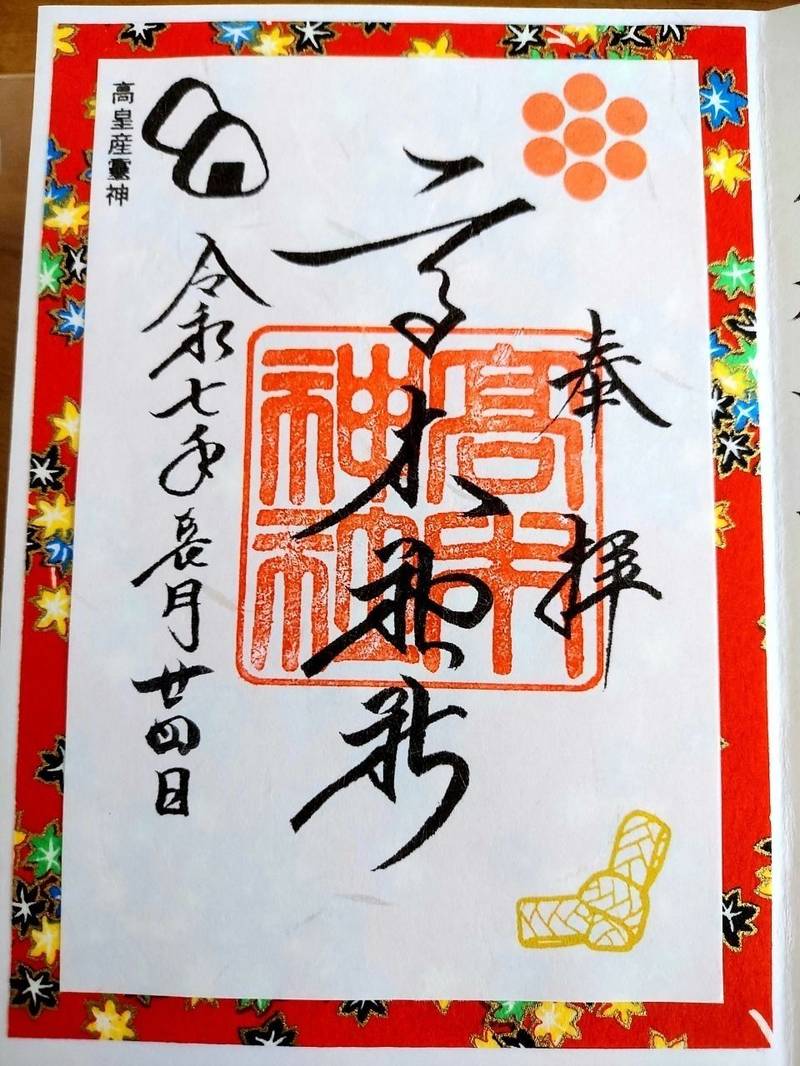 奉拝
高木神社
高木
神社
令和七年長月廿四日
高皇産靈神